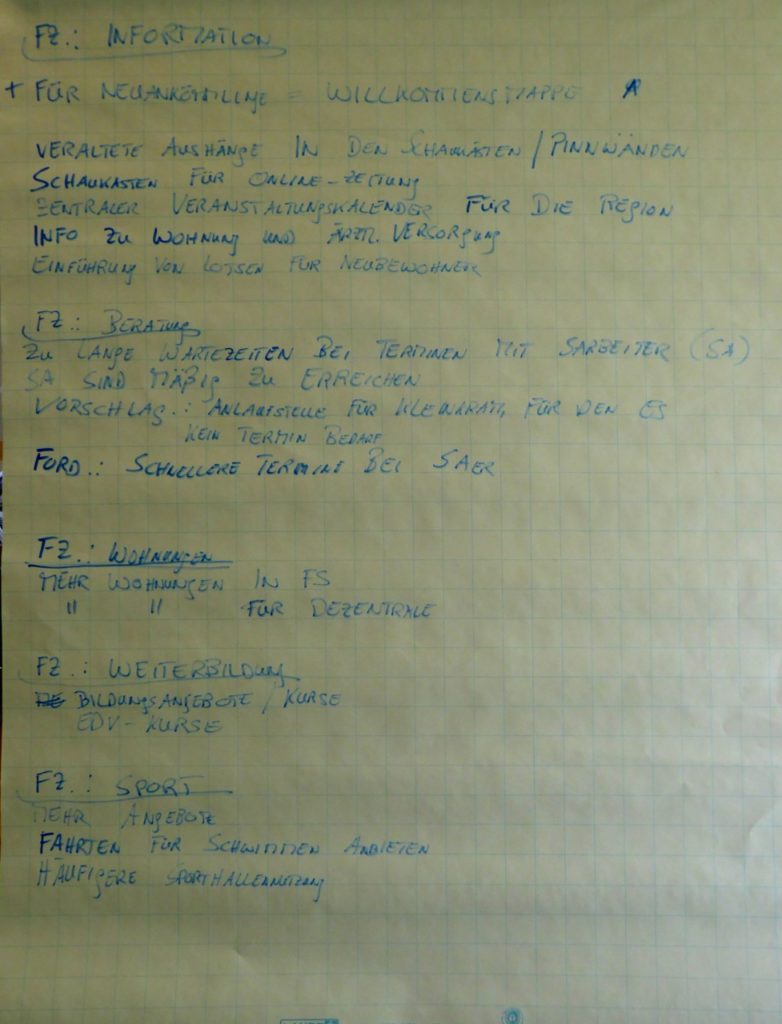 FZ.: INFORMATION
+ FÜR NEUANKÖMMLINGE = WILLKOMMENSMAPPE
VERALTETE AUSHÄNGE IN DEN SCHAUKÄSTEN / PINNWÄNDEN
SCHAUKASTEN FÜR ONLINE-ZEITUNG
ZENTRALER VERANSTALTUNGSKALENDER FÜR DIE REGION
INFO ZU WOHNUNG UND ÄRZTL. VERSORGUNG
EINFÜHRUNG VON LOTSEN FÜR NEUBEWOHNER
FZ.: BERATUNG
ZU LANGE WARTEZEITEN BEI TERMINEN MIT SARBEITER (SA)
SA SIND MÄßIG ZU ERREICHEN
VORSCHLAG.: ANLAUFSTELLE FÜR KLEINKRAM, FÜR DEN ES
KEIN TERMIN BEDARF
FORD.: SCHNELLERE TERMINE BEI SAER
FZ.: WOHNUNGEN
MEHR WOHNUNGEN IN FS
" " FÜR DEZENTRALE
FZ.: WEITERBILDUNG
BILDUNGSANGEBOTE / KURSE
EDV-KURSE
FZ.: SPORT
MEHR ANGEBOTE
FAHRTEN FÜR SCHWIMMEN ANBIETEN
HÄUFIGERE SPORTHALLENNUTZUNG